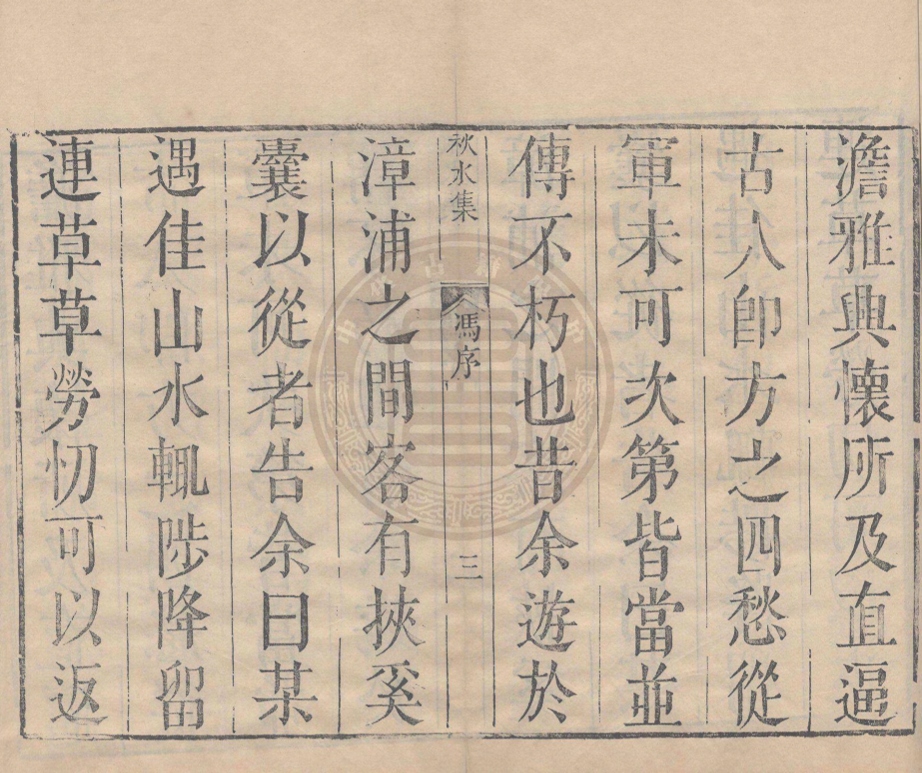 澹雅典懷所及直逼
古人卽方之四愁從
軍未可次第皆當並
傳不朽也昔余遊於
秋水集 馮序 三
漳浦之間客有挾奚
囊以從者告余曰某
遇佳山水輒陟降留
連草草勞忉可以返